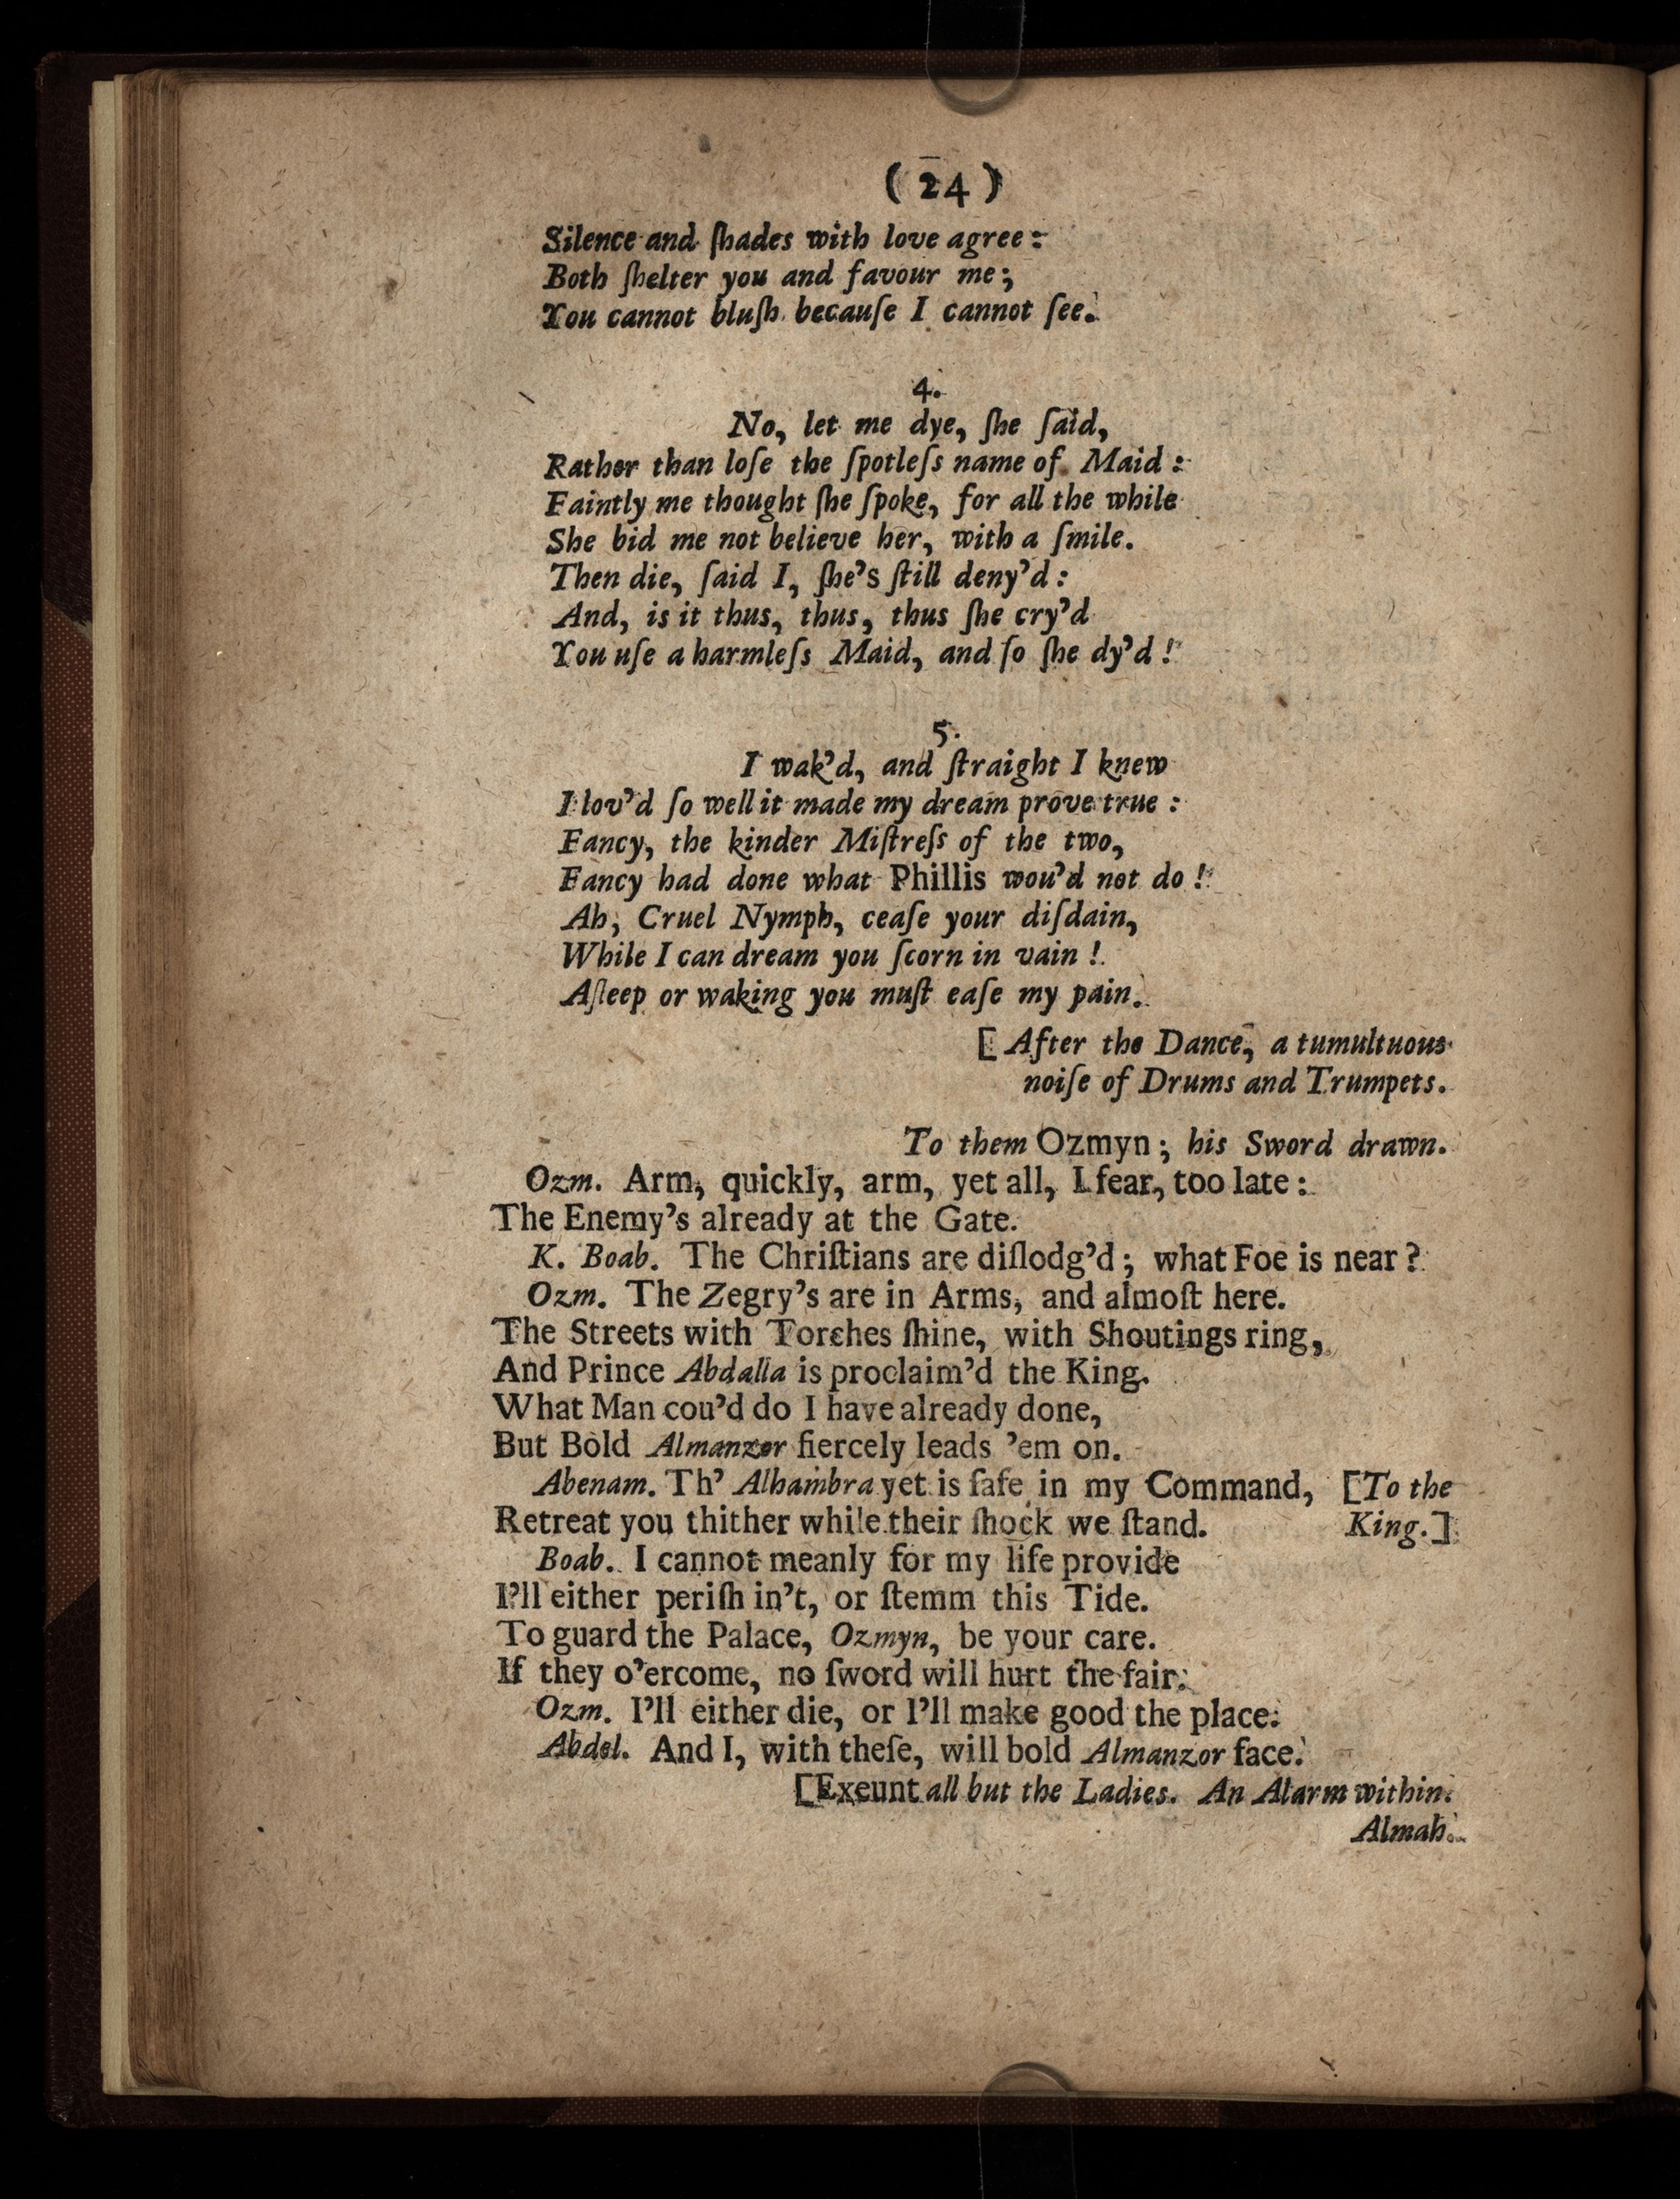 ( 24 )
Silence and ſhades with love agree:
Both ſhelter you and favour me;
You cannot bluſh because I cannot ſee.
4.
No, let me dye, ſhe ſaid,
Rather than loſe the ſpotleſs name of Maid:
Faintly me thought ſhe ſpoke, for all the while
She bid me not believe her, with a ſmile.
Then die, ſaid I, ſhe's ſtill deny'd:
And, is it thus, thus, thus ſhe cry'd
You uſe a harmleſs Maid, and ſo ſhe dy'd!
5.
I wak'd, and ſtraight I knew
I lov'd ſo well it made my dream prove true:
Fancy, the kinder Miſtreſs of the two,
Fancy had done what Phillis wou'd not do!
Ah, Cruel Nymph, ceaſe your diſdain,
While I can dream you ſcorn in vain!
Aſleep or waking you muſt eaſe my pain.
[After the Dance, a tumultuous
noiſe of Drums and Trumpets.
To them Ozmyn; his Sword drawn.
Ozm. Arm, quickly, arm, yet all, I fear, too late:
The Enemy's already at the Gate.
K. Boab. The Chriſtians are diſlodg'd; what Foe is near?
Ozm. The Zegry's are in Arms, and almoſt here.
The Streets with Torches ſhine, with Shoutings ring,
And Prince Abdalla is proclaim'd the King.
What Man cou'd do I have already done,
But Bold Almanzor fiercely leads 'em on.
Abenam. Th' Alhambra yet is ſafe in my Command, [To the
Retreat you thither while their ſhock we ſtand. King.]
Boab. I cannot meanly for my life provide
I'll either periſh in't, or ſtemm this Tide.
To guard the Palace, Ozmyn, be your care.
If they o'ercome, no ſword will hurt the fair.
Ozm. I'll either die, or I'll make good the place.
Abdel. And I, with theſe, will bold Almanzor face.
[Exeunt all but the Ladies. An Alarm within.
Almah.